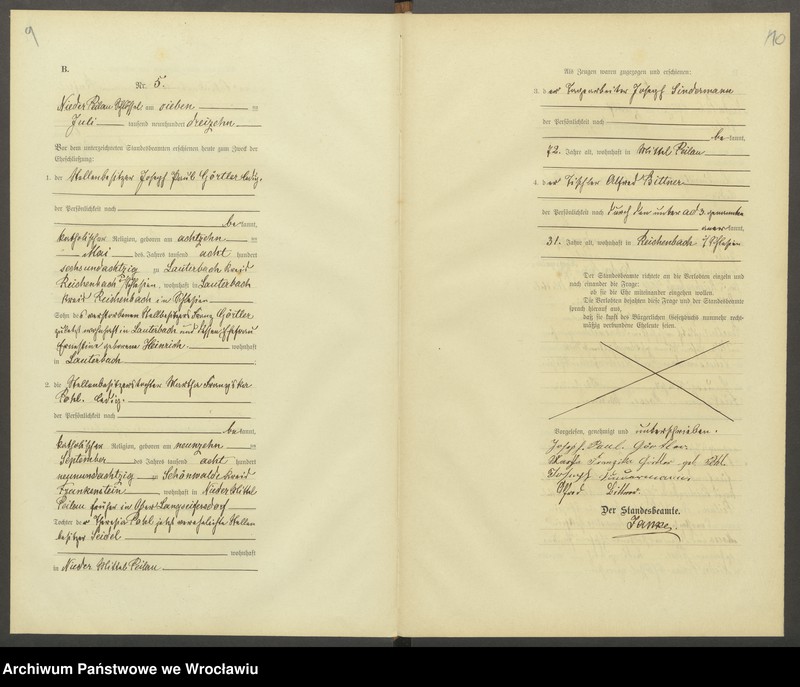 9
B.
Nr. 5.
Nieder Peilau Schlössel am sieben ten
Juli tausend neunhundert dreizehn
Vor dem unterzeichneten Standesbeamten erschienen heute zum Zweck der
Eheschließung:
1. der Stellenbesitzer Joseph Paul Görtler ledig,
der Persönlichkeit nach
be kannt,
katholischer Religion, geboren am achtzehn ten
Mai des Jahres tausend acht hundert
sechsundachtzig zu Lauterbach Kreis
Reichenbach Schlesien, wohnhaft in Lauterbach
Kreis Reichenbach in Schlesien
Sohn des verstorbenen Stellbesitzers Franz Görtler
zuletzt wohnhaft in Lauterbach und dessen Ehefrau
Ernestine geborene Heinrich. wohnhaft
in Lauterbach
2. die Stellenbesitzerstochter Martha Franziska
Pohl. ledig.
der Persönlichkeit nach
be kannt,
katholischer Religion, geboren am neunzehn ten
September des Jahres tausend acht hundert
neunundachtzig zu Schönwalde Kreis
Frankenstein, wohnhaft in Nieder Mittel
Peilau früher in Ober Langseifersdorf
Tochter der Theresia Pohl jetzt verehelichte Stellen
besitzer Seidel
wohnhaft
in Nieder Mittel Peilau
110
Als Zeugen waren zugezogen und erschienen:
3. der Tagearbeiter Joseph Sindermann
der Persönlichkeit nach
be kannt,
72 Jahre alt, wohnhaft in Mittel Peilau
4. der Tischler Alfred Bittner
der Persönlichkeit nach durch den unter ad 3. genannten
aner kannt,
31 Jahre alt, wohnhaft in Reichenbach i/Schlesien
Der Standesbeamte richtete an die Verlobten einzeln und
nach einander die Frage:
ob sie die Ehe miteinander eingehen wollen.
Die Verlobten bejahten diese Frage und der Standesbeamte
sprach hierauf aus,
daß sie kraft des Bürgerlichen Gesetzbuchs nunmehr recht-
mäßig verbundene Eheleute seien.
Vorgelesen, genehmigt und unterschrieben.
Joseph Paul Görtler
Martha Franziska Görtler geb. Pohl.
Joseph Sindermann
Alfred Bittner
Der Standesbeamte.
Janke.
Archiwum Państwowe we Wrocławiu